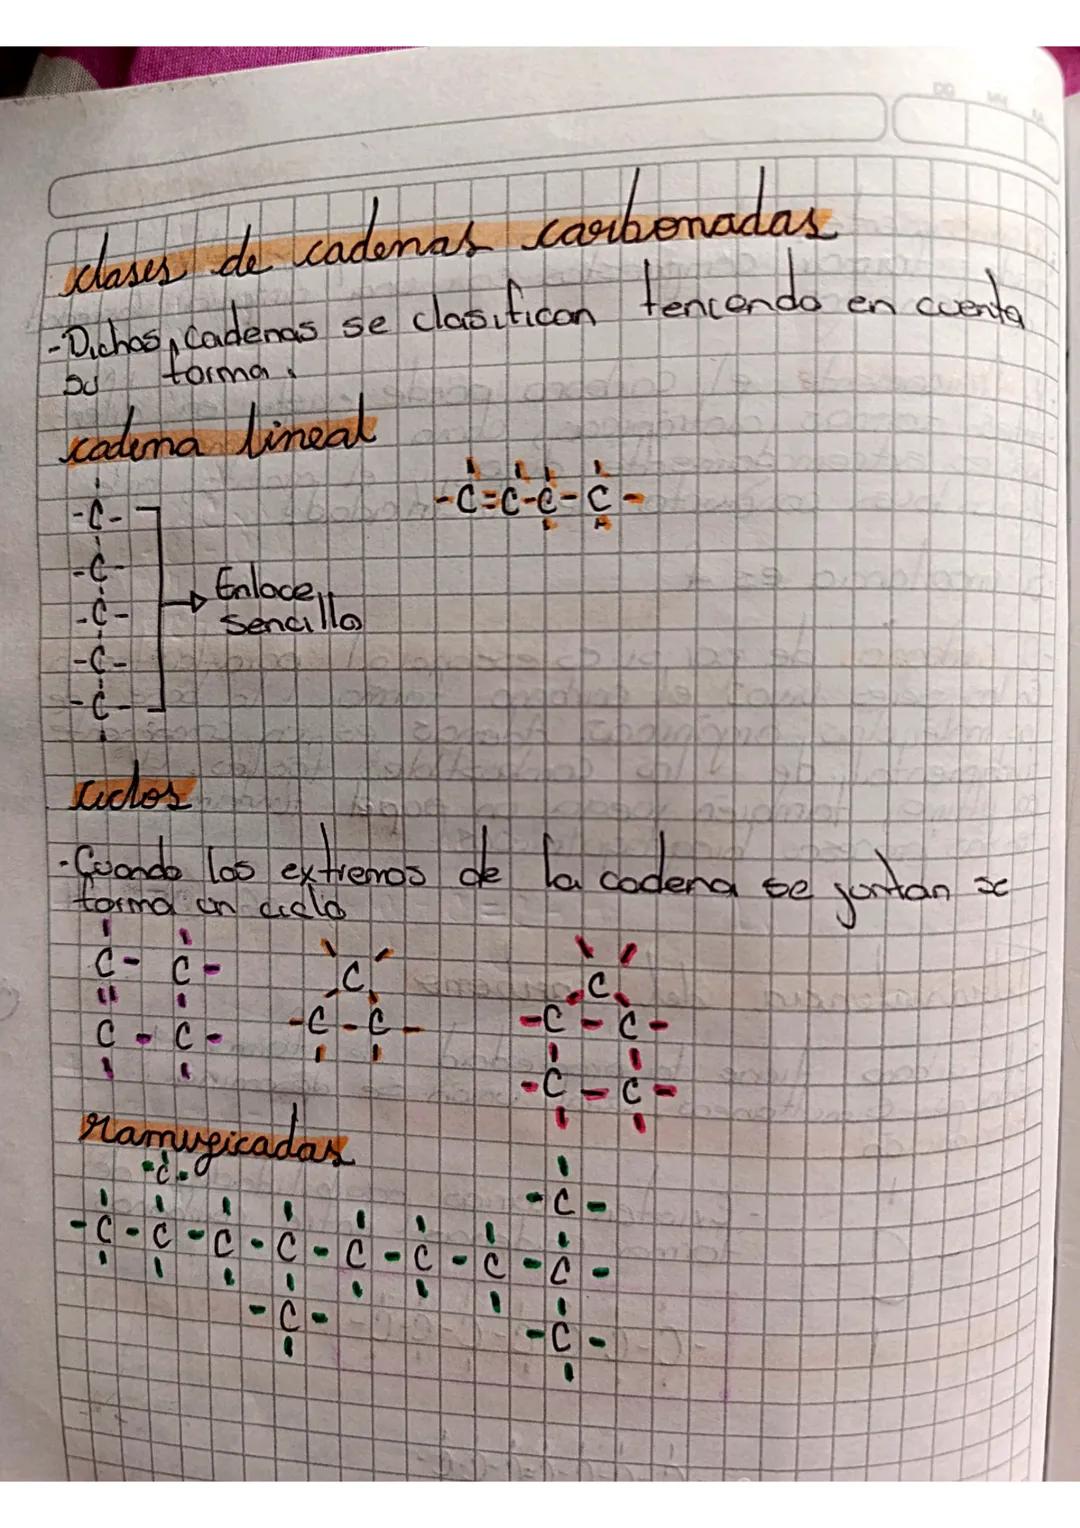 clases de cadenas carbonadas
-Dichas, cadenas se clasifican teniendo en cuenta
su forma.
cadena lineal
-C-
-C=C-C-C-
-C-
-C-
-C-
-C-
Enlace
sencillo
ciclos
-Cuando los extremos de la cadena se juntan se
forma un ciclo
C- C-
C
-C-C-
C - C-
C
-C-C-
-C-C-
ramificadas
-C-
-C-
-C-C-C-C-C-C-C-C-
-C-
-C-